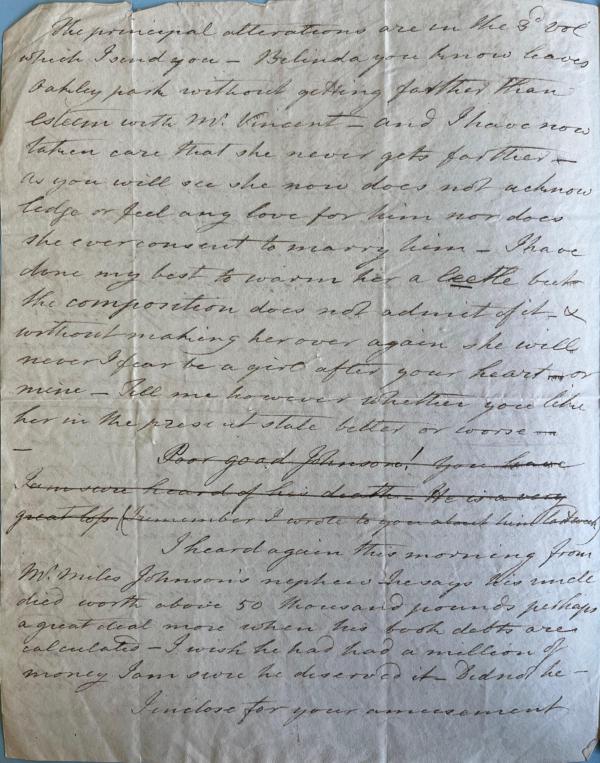 The principal alterations are in the 3d Vol
which I send you – Belinda you know leaves
Oakley park without getting farther than
esteem with Mr. Vincent – and I have now
taken care that she never gets farther –
as you will see she now does not acknow
ledge or feel any love for him nor does
she ever consent to marry him – I have
done my best to warm her a leetle but
the composition does not admit of it – &
without making her over again she will
never I fear be a girl after your heart – or
mine – Tell me however whether you like
her in the present state better or worse –
–
Poor good Johnson! You have
I am sure heard of his death – He is a very
great loss (I remember I wrote to you about him last week)
I heard again this morning from
Mr. Miles Johnson's nephew – he says his uncle
died worth above 50 thousand pounds perhaps
a great deal more when his book debts are
calculated – I wish he had had a million of
money I am sure he deserved it – Did not he –
I inclose for your amusement